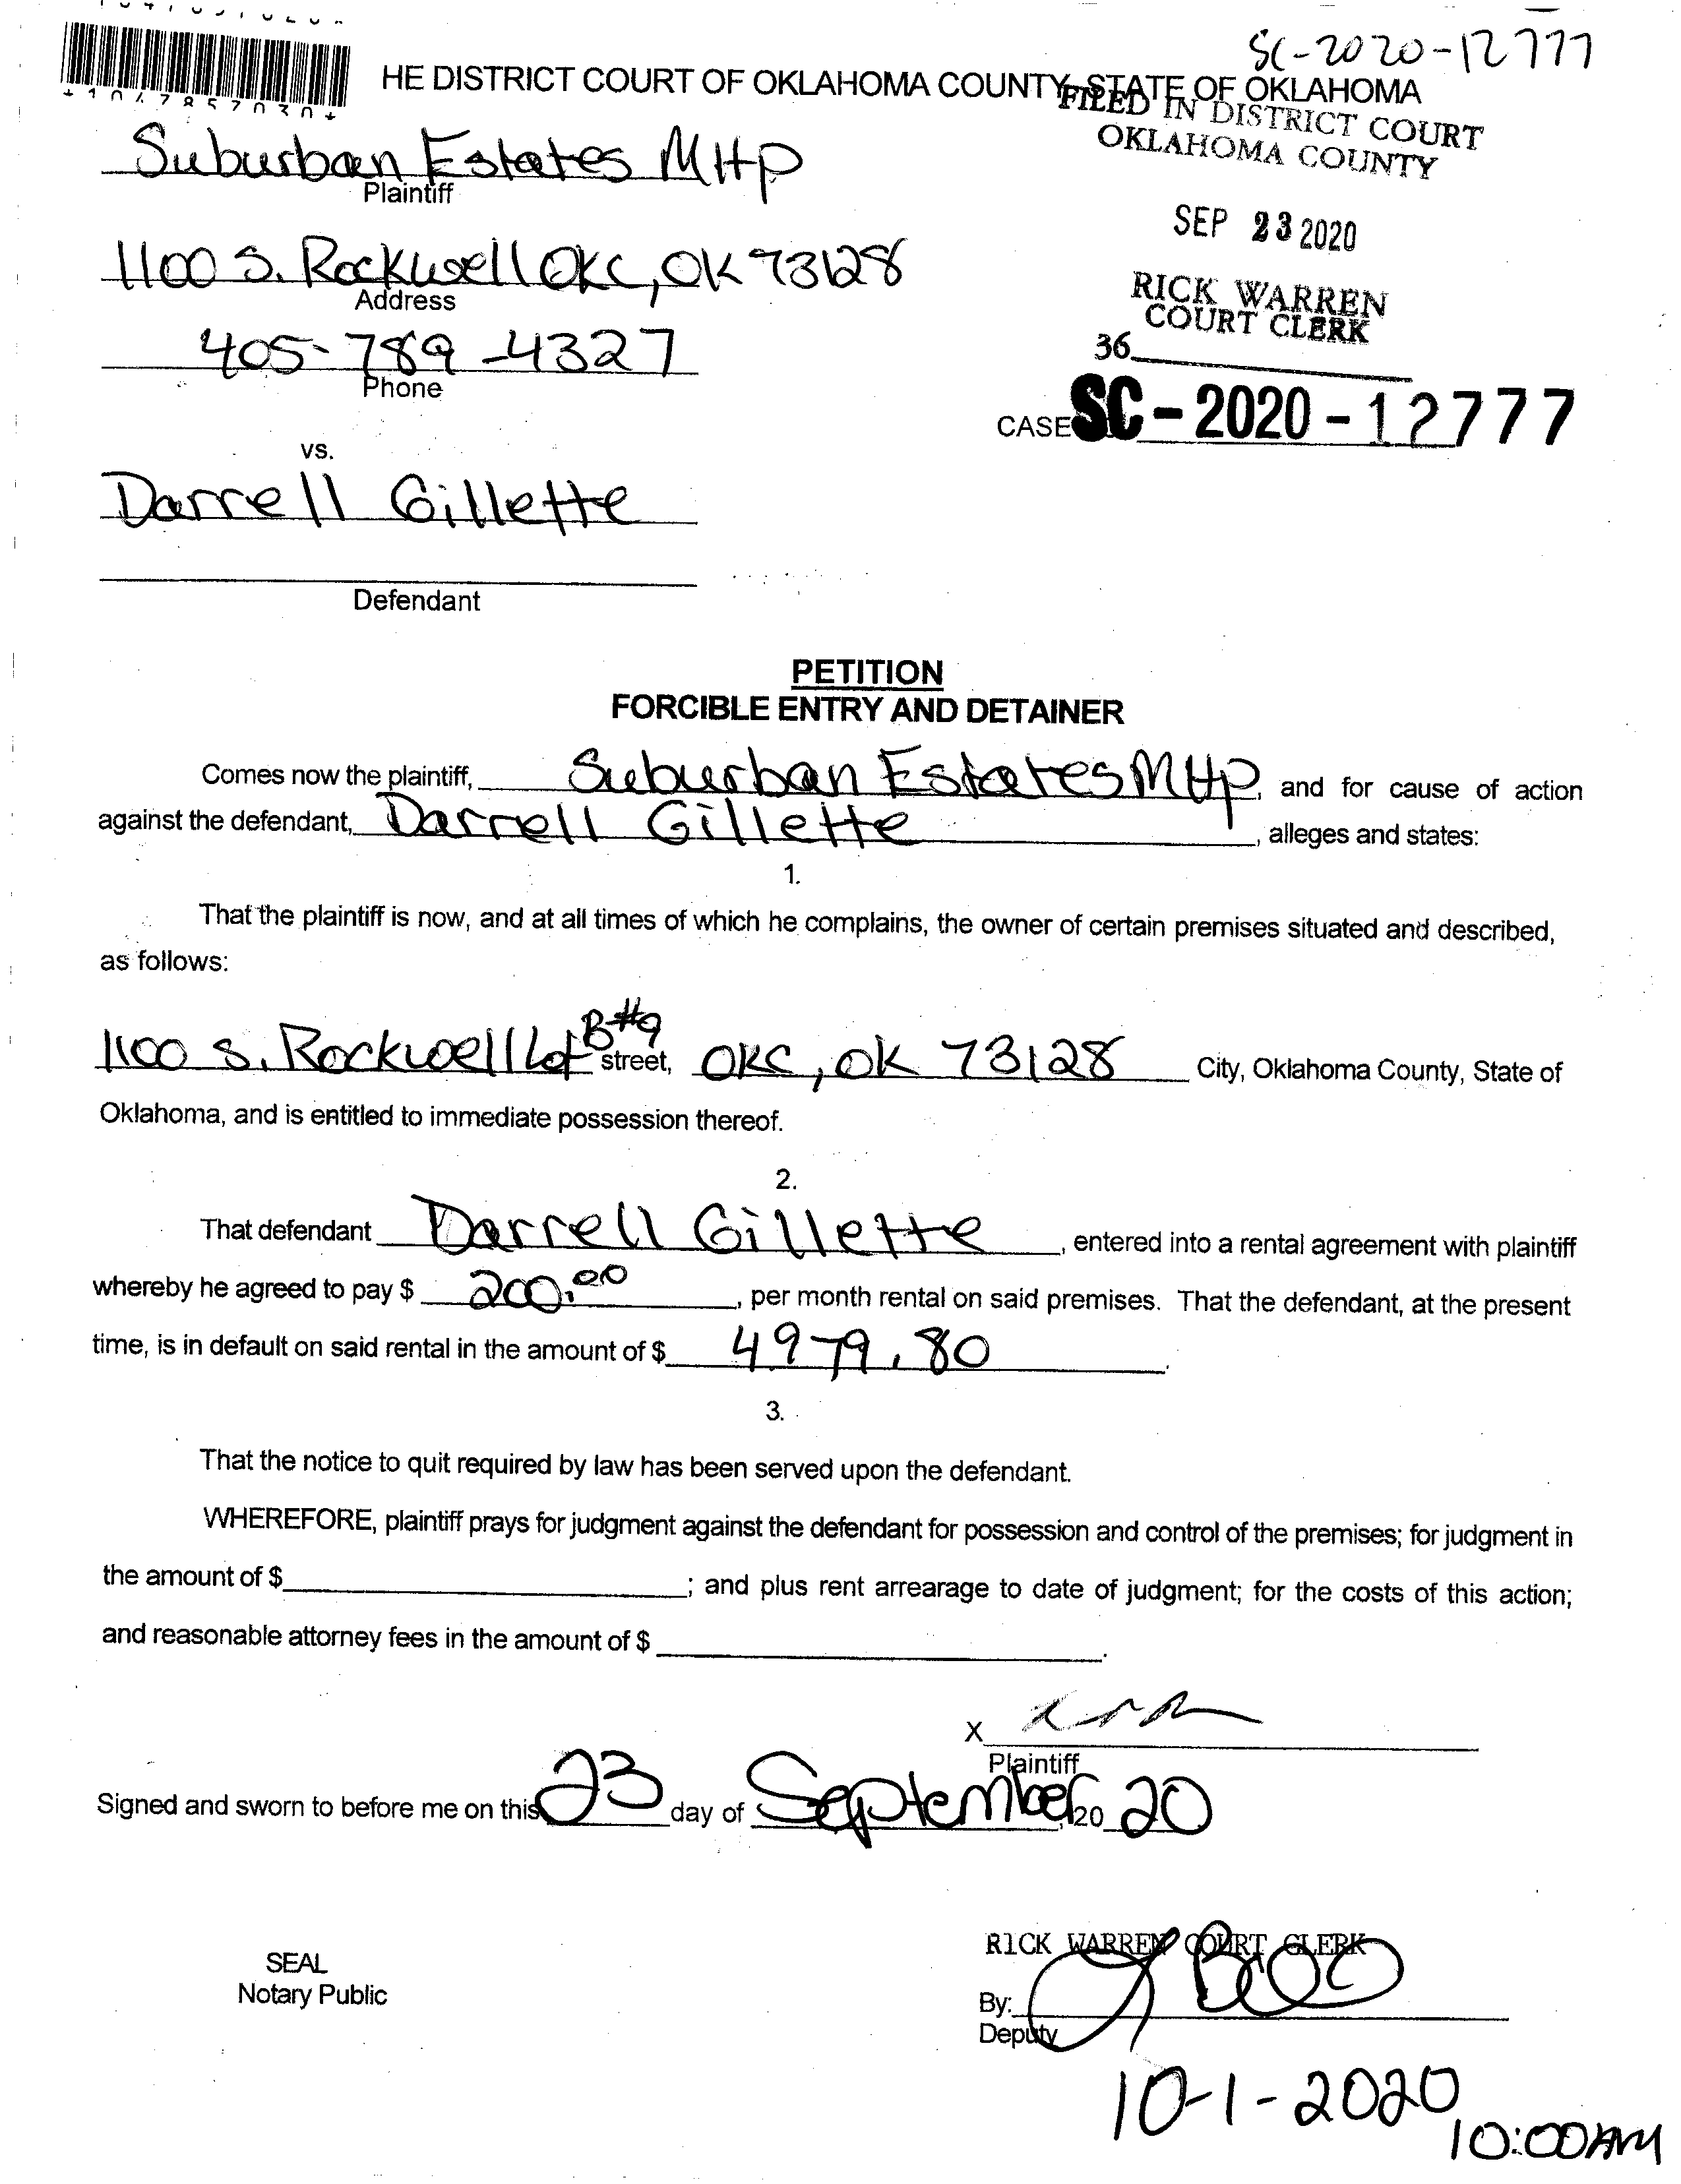 SC-2020-12777
HE DISTRICT COURT OF OKLAHOMA COUNTY, STATE OF OKLAHOMA
*1047857030*
FILED IN DISTRICT COURT
OKLAHOMA COUNTY
Suburban Estates MHP
Plaintiff
SEP 23 2020
1100 S. Rockwell OKC, OK 73128
Address
RICK WARREN
COURT CLERK
405-789-4327
Phone
36
CASE SC-2020-12777
vs.
Darrell Gillette
Defendant
PETITION
FORCIBLE ENTRY AND DETAINER
Comes now the plaintiff, Suburban Estates MHP, and for cause of action
against the defendant, Darrell Gillette, alleges and states:
1.
That the plaintiff is now, and at all times of which he complains, the owner of certain premises situated and described,
as follows:
1100 S. Rockwell Lot B#9 street, OKC, OK 73128 City, Oklahoma County, State of
Oklahoma, and is entitled to immediate possession thereof.
2.
That defendant Darrell Gillette, entered into a rental agreement with plaintiff
whereby he agreed to pay $ 200.00, per month rental on said premises. That the defendant, at the present
time, is in default on said rental in the amount of $ 4979.80.
3.
That the notice to quit required by law has been served upon the defendant.
WHEREFORE, plaintiff prays for judgment against the defendant for possession and control of the premises; for judgment in
the amount of $; and plus rent arrearage to date of judgment; for the costs of this action;
and reasonable attorney fees in the amount of $.
X
Plaintiff
Signed and sworn to before me on this 23 day of September, 20 20
RICK WARREN COURT CLERK
SEAL
Notary Public
By:
Deputy
10-1-2020
10:00AM